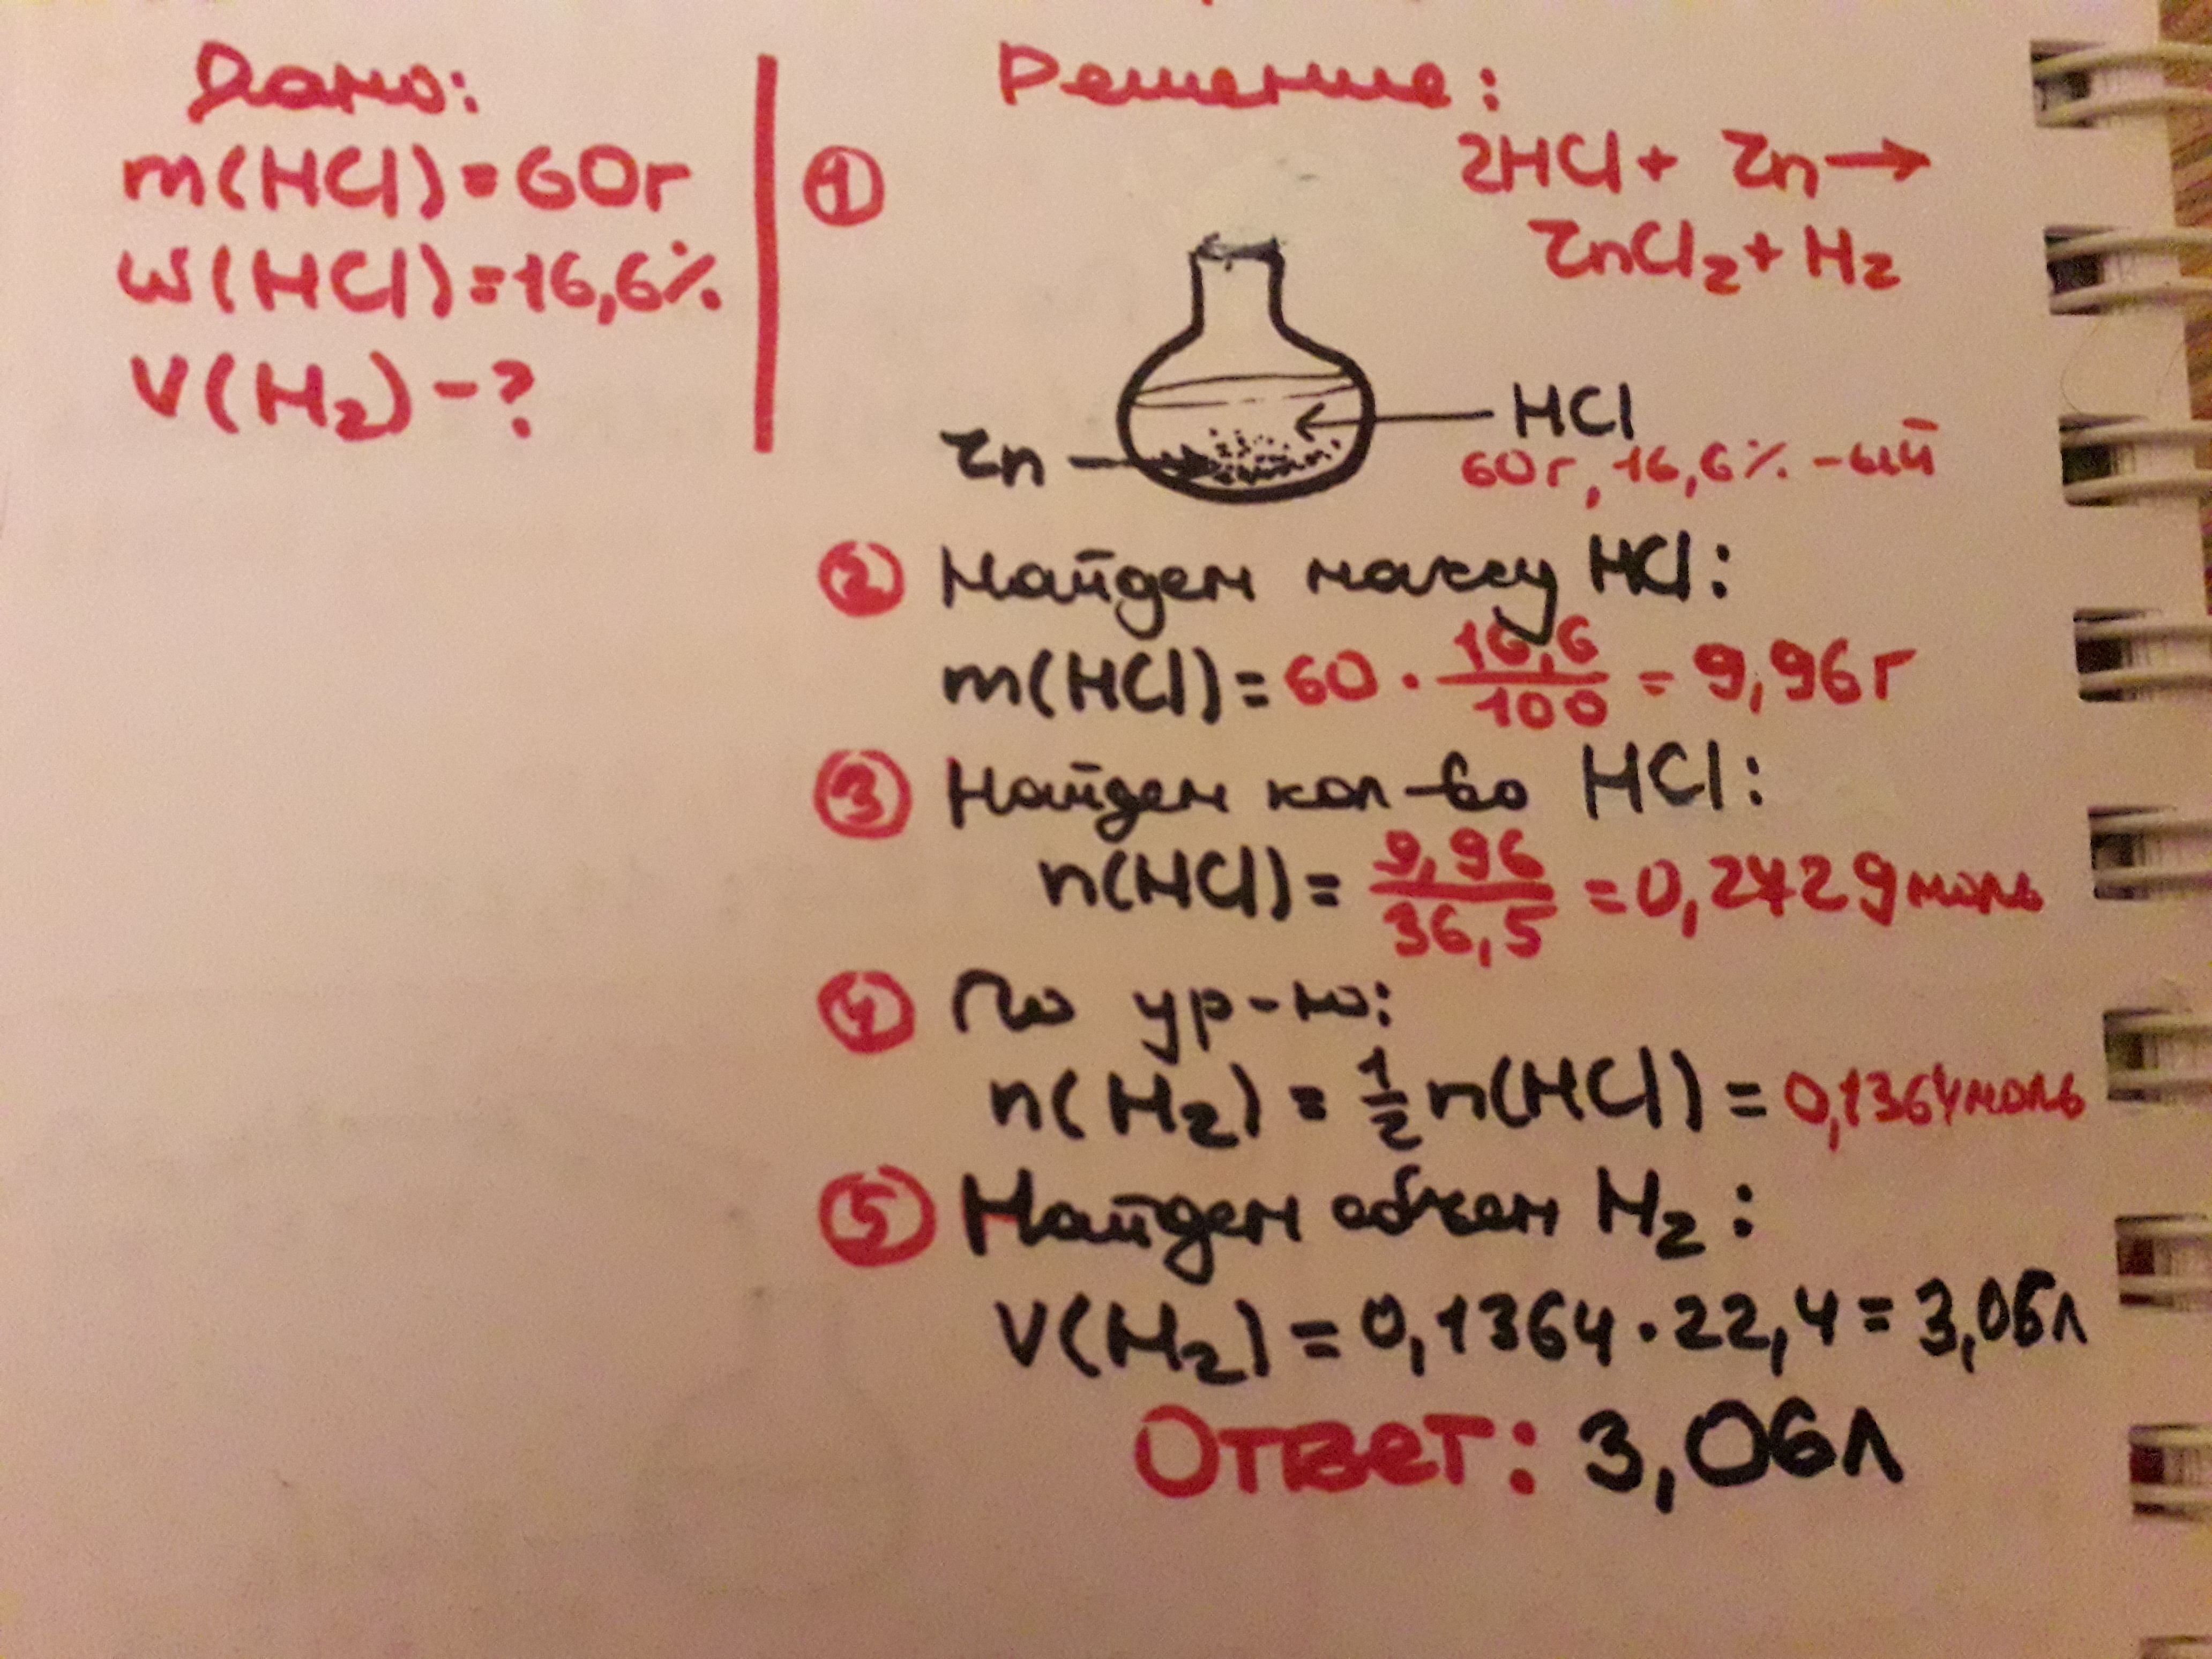 Дано:
m(HCl)=60г
w(HCl)=16,6%
V(H₂)-?
Решение:
1
2HCl + Zn →
ZnCl₂ + H₂
HCl
60г, 16,6% -ый
Zn
2 Найдем массу HCl:
m(HCl)=60 · 16,6/100 = 9,96г
3 Найдем кол-во HCl:
n(HCl)= 9,96/36,5 =0,2729моль
4 По ур-ю:
n(H₂) = 1/2 n(HCl) = 0,1364моль
5 Найдем объем H₂:
V(H₂) = 0,1364 · 22,4 = 3,06л
Ответ: 3,06л